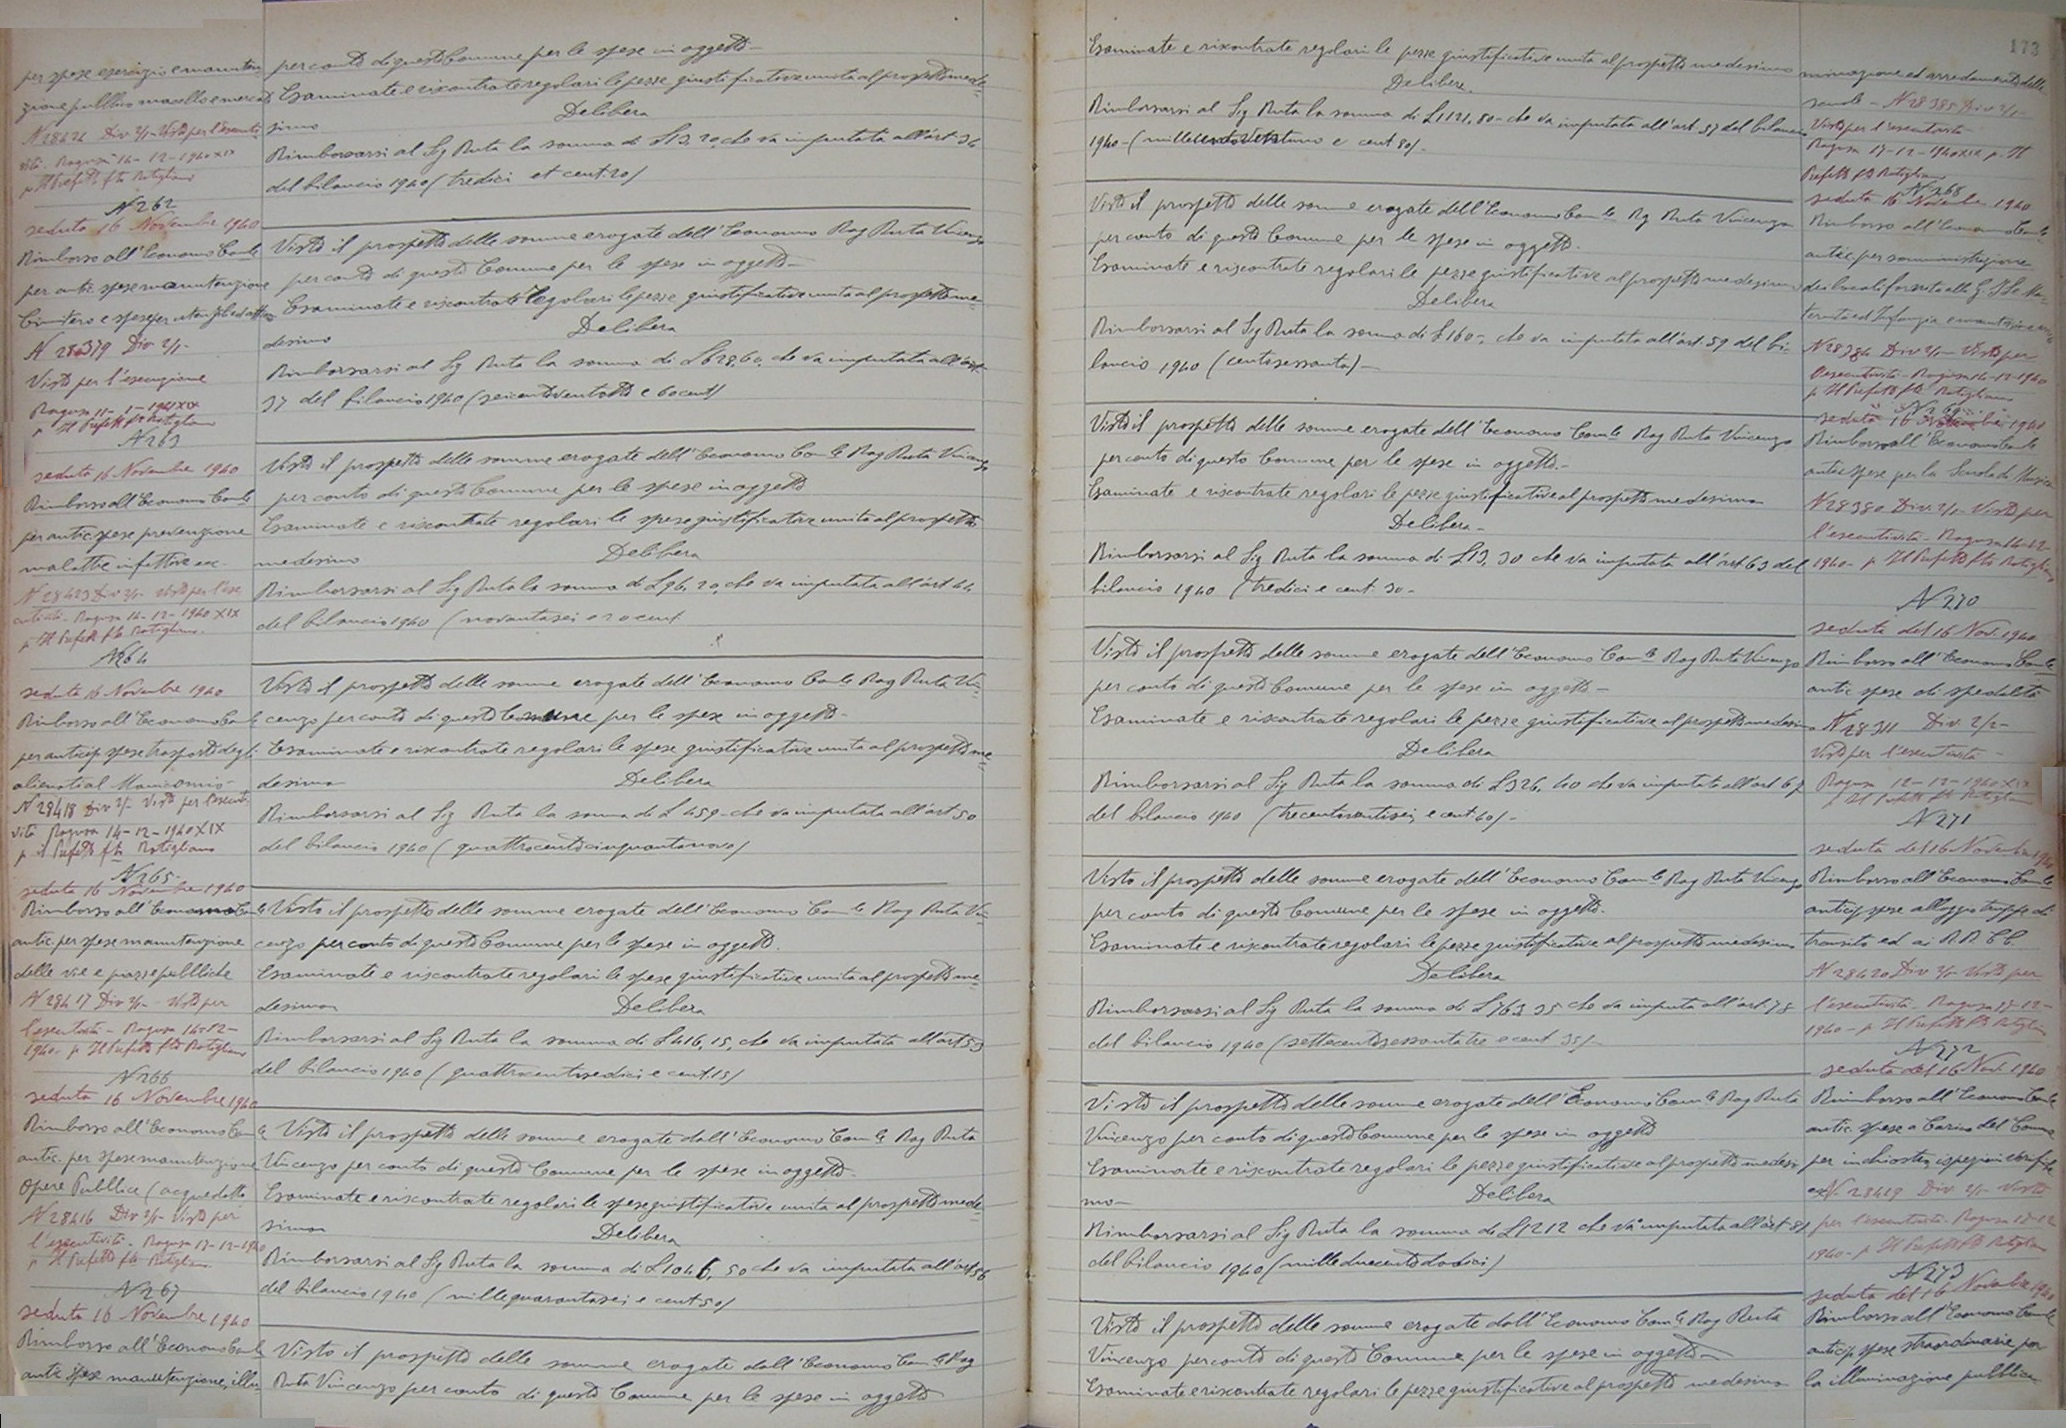 per spese esercizio e manuten
zione pubblico macello e mercati
N 28424 Div 2/1- Visto per l'esecuti-
vità. Ragusa 14-12-1940 XIX
p Il Prefetto fto Rotigliano
N 262
seduta 16 Novembre 1940
Rimborso all'Economo Comle
per antic. spese manutenzione
Cimitero e spese per utensili ed attr
N 28379 Div 2/1-
Visto per l'esecuzione
Ragusa 11-1-1941 XIX
p Il Prefetto fto Rotigliano
N 263
seduta 16 Novembre 1940
Rimborso all'Economo Comle
per antic. spese prevenzione
malattie infettive ecc.
N 28423 Div 2/1- Visto per l'ese
cutività. Ragusa 14-12-1940 XIX
p Il Prefetto fto Rotigliano.
N 264
seduta 16 Novembre 1940
Rimborso all'Economo Comle
per anticip. spese trasporto degli
alienati al Manicomio-
N 28418 Div 2/1- Visto per l'esecuti-
vità Ragusa 14-12-1940 XIX
p il Prefetto fto Rotigliano
N 265-
seduta 16 Novembre 1940
Rimborso all'Economo Comle
antic. per spese manutenzione
delle vie e piazze pubbliche
N 28417 Div 2/1- Visto per
l'esecutività- Ragusa 14-12-
1940- p Il Prefetto fto Rotigliano
N 266
seduta 16 Novembre 1940
Rimborso all'Economo Comle
antic. per spese manutenzione
Opere Pubblica (acquedotto
N 28416 Div 2/1- Visto per
l'esecutività. Ragusa 17-12-1940
p Il Prefetto fto Rotigliano.
N 267
seduta 16 Novembre 1940
Rimborso all'Economo Comle
antic. spese manutenzione, illu-
per conto di questo Comune per le spese in oggetto-
Esaminate e riscontrate regolari le pezze giustificative unita al prospetto mede-
simo Delibera
Rimborsarsi al Sig Ruta la somma di £ 13,20 che va imputata all'art. 36
del bilancio 1940 (tredici et cent.20)
Visto il prospetto delle somme erogate dell'Economo Rag Ruta Vincenzo
per conto di questo Comune per le spese in oggetto-
Esaminate e riscontrate regolari le pezze giustificative unita al prospetto me-
desimo Delibera
Rimborsarsi al Sig Ruta la somma di £ 628,60, che va imputata all'art
37 del bilancio 1940 (seicentoventotto e 60 cent)
Visto il prospetto delle somme erogate dell'Economo Comle Rag Ruta Vincenzo
per conto di questo Comune per le spese in oggetto
Esaminate e riscontrate regolari le spese giustificative unita al prospetto
medesimo Delibera
Rimborsarsi al Sig Ruta la somma di £ 96,20, che va imputata all'art 44
del bilancio 1940 (novantasei e 20 cent
Visto il prospetto delle somme erogate dell'Economo Comle Rag Ruta Vin-
cenzo per conto di questo Comune per le spese in oggetto-
Esaminate e riscontrate regolari le spese giustificative unita al prospetto me
desimo Delibera
Rimborsarsi al Sig Ruta la somma di £ 459- che va imputata all'art 50
del bilancio 1940 (quattrocentocinquantanove)
Visto il prospetto delle somme erogate dell'Economo Comle Rag Ruta Vin-
cenzo per conto di questo Comune per le spese in oggetto.
Esaminate e riscontrate regolari le spese giustificative unita al prospetto me-
desimo Delibera
Rimborsarsi al Sig Ruta la somma di £ 416,15, che va imputata all'art 53
del bilancio 1940 (quattrocentosedici e cent.15)
Visto il prospetto delle somme erogate dall'Economo Comle Rag Ruta
Vincenzo per conto di questo Comune per le spese in oggetto-
Esaminate e riscontrate regolari le spese giustificative unita al prospetto mede-
simo Delibera
Rimborsarsi al Sig Ruta la somma di £ 1046,50 che va imputata all'art 56
del bilancio 1940 (millequarantasei e cent 50)
Visto il prospetto delle somme erogate dall'Economo Comle Rag
Ruta Vincenzo per conto di questo Comune per le spese in oggetto
173
Esaminate e riscontrate regolari le pezze giustificative unita al prospetto medesimo
Delibera.
Rimborsarsi al Sig Ruta la somma di £ 1121,80- che va imputata all'art. 57 del bilancio
1940- (millecentoventuno e cent 80).
Visto il prospetto delle somme erogate dell'Economo Comle Rg Ruta Vincenzo
per conto di questo Comune per le spese in oggetto.
Esaminate e riscontrate regolari le pezze giustificative al prospetto medesimo
Delibera
Rimborsarsi al Sig Ruta la somma di £ 160-, che va imputata all'art. 59 del bi-
lancio 1940 (centosessanta)-
Visto il prospetto delle somme erogate dell'Economo Comle Rag Ruta Vincenzo
per conto di questo Comune per le spese in oggetto.-
Esaminate e riscontrate regolari le pezze giustificative al prospetto medesimo
Delibera-
Rimborsarsi al Sig Ruta la somma di £ 13,30 che va imputata all'art 63 del
bilancio 1940 (tredici e cent. 30-
Visto il prospetto delle somme erogate dell'Economo Comle Rag Ruta Vincenzo
per conto di questo Comune per le spese in oggetto-
Esaminate e riscontrate regolari le pezze giustificative al prospetto medesimo
Delibera
Rimborsarsi al Sig Ruta la somma di £ 326,40 che va imputata all'art 67
del bilancio 1940 (trecentoventisei e cent 40)-
Visto il prospetto delle somme erogate dell'Economo Comle Rag Ruta Vincenzo
per conto di questo Comune per le spese in oggetto.
Esaminate e riscontrate regolari le pezze giustificative al prospetto medesimo
Delibera
Rimborsarsi al Sig Ruta la somma di £ 763,35 che va imputa all'art. 78
del bilancio 1940 (settecentosessantatre e cent 35)-
Visto il prospetto delle somme erogate dell'Economo Comle Rag Ruta
Vincenzo per conto di questo Comune per le spese in oggetto
Esaminate e riscontrate regolari le pezze giustificative al prospetto medesi
mo- Delibera
Rimborsarsi al Sig Ruta la somma di £ 1212 che va imputata all'art 81
del bilancio 1940 (milleduecentododici)
Visto il prospetto delle somme erogate dall'Economo Comle Rag Ruta
Vincenzo per conto di questo Comune per le spese in oggetto-
Esaminate e riscontrate regolari le pezze giustificative al prospetto medesimo
minazione ed arredamento delle
scuole- N 28385 Div 2/1-
Visto per l'esecutività
Ragusa 17-12-1940 XIX p Il
Prefetto fto Rotigliano
N 268
seduta 16 Novembre 1940
Rimborso all'Economo Comle
antic. per somministrazione
dei locali fornito alla
ternità ed Infanzia e
N 28384 Div 2/1- Visto per
l'esecutività- Ragusa 14-12-1940
p Il Prefetto fto Rotigliano
N 269
seduta 16 Novembre 1940
Rimborso all'Economo Comle
antic spese per la Scuola di Musica
N 28380 Div 2/1- Visto per
l'esecutività- Ragusa 14-12-
1940- p Il Prefetto fto Rotigliano
N 270
seduta del 16 Nov. 1940
Rimborso all'Economo Comle
antic spese di spedalità
N 28311 Div 2/2-
Visto per l'esecutività-
Ragusa 12-12-1940 XIX
p Il Prefetto fto Rotigliano
N 271
seduta del 16 Novembre 1940
Rimborso all'Economo Comle
anticip spese alloggio truppe di
transito ed ai RR CC
N 28420 Div 2/1- Visto per
l'esecutività- Ragusa 17-12-
1940- p Il Prefetto fto Rotigliano
N 272
seduta del 16 Nov. 1940
Rimborso all'Economo Comle
antic. spese a Carico del Comune
per inchieste, ispezioni
N 28429 Div 2/1- Visto
per l'esecutività- Ragusa 17-12
1940- p Il Prefetto fto Rotigliano
N 273
seduta del 16 Novembre 1940
Rimborso all'Economo Comle
anticip spese straordinarie per
la illuminazione pubblica